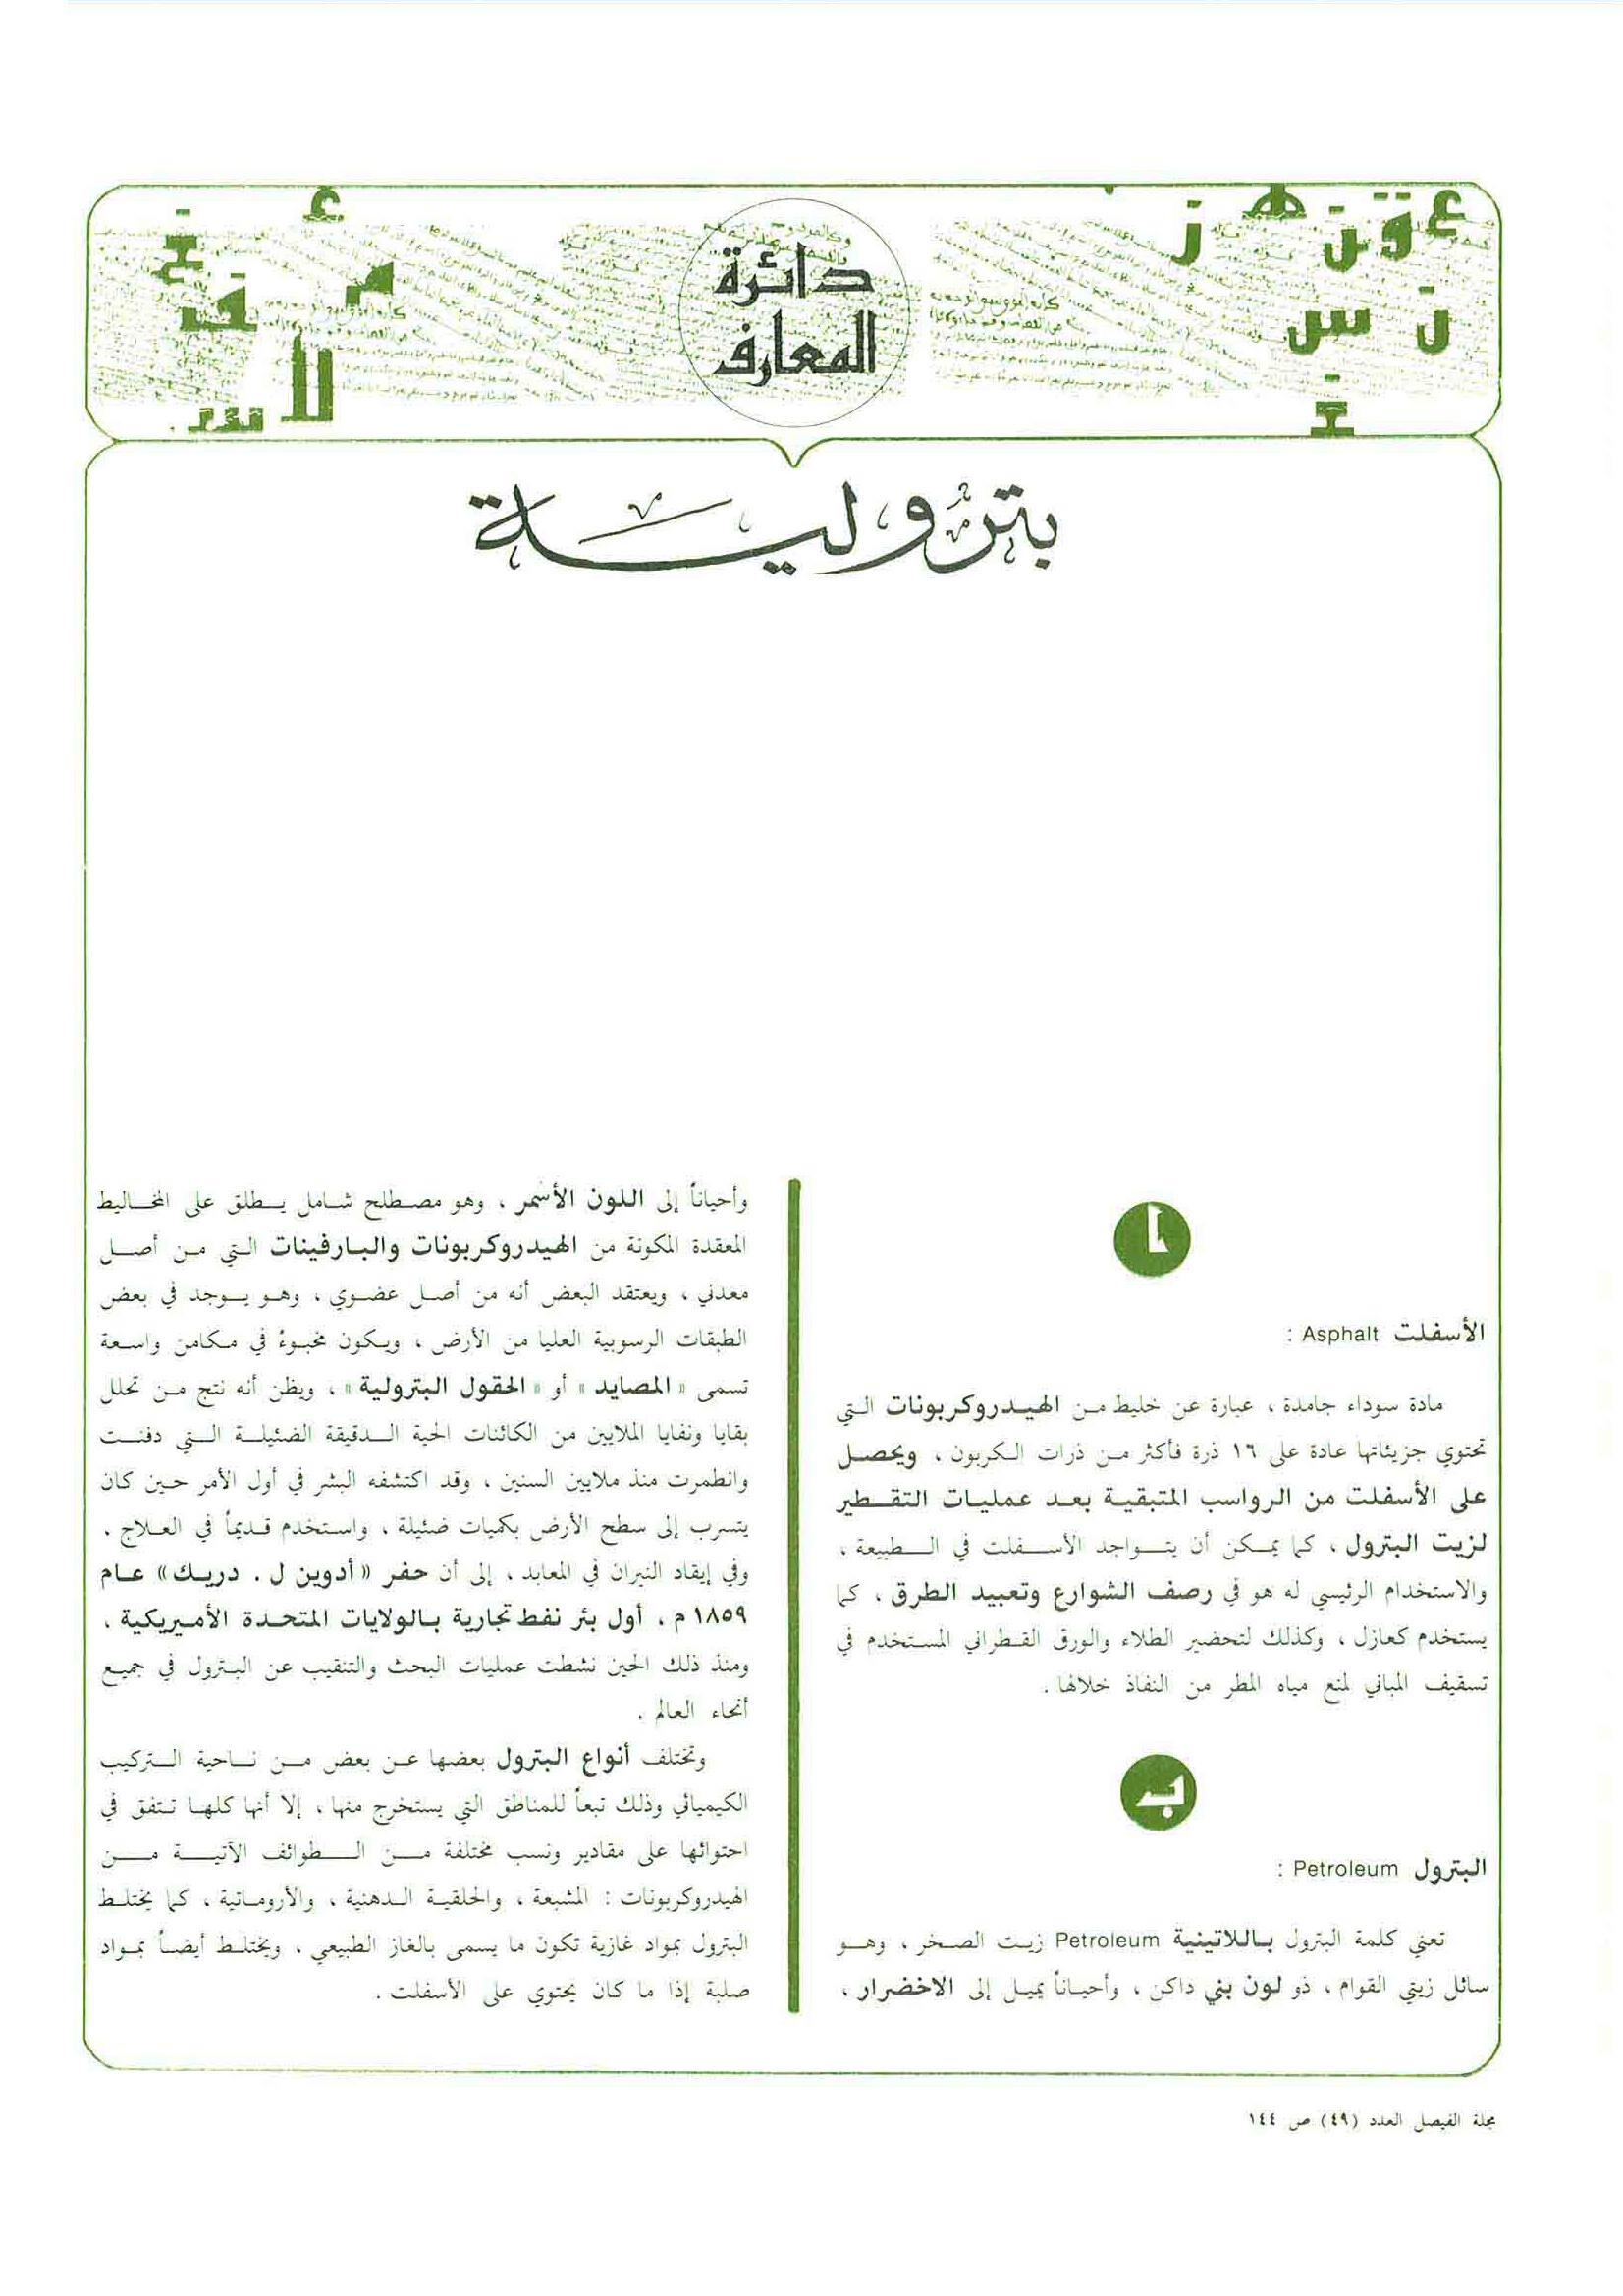 دائرة
المعارف
بترولية
ا
الأسفلت Asphalt :
مادة سوداء جامدة ، عبارة عن خليط من الهيدروكربونات التي
تحتوي جزيئاتها عادة على ١٦ ذرة فأكثر من ذرات الكربون ، ويحصل
على الأسفلت من الرواسب المتبقية بعد عمليات التقطير
لزيت البترول ، كما يمكن أن يتواجد الأسفلت في الطبيعة ،
والاستخدام الرئيسي له هو في رصف الشوارع وتعبيد الطرق ، كما
يستخدم كعازل ، وكذلك لتحضير الطلاء والورق القطراني المستخدم في
تسقيف المباني لمنع مياه المطر من النفاذ خلالها .
ب
البترول Petroleum :
تعني كلمة البترول باللاتينية Petroleum زيت الصخر ، وهو
سائل زيتي القوام ، ذو لون بني داكن ، وأحياناً يميل إلى الاخضرار ،
وأحياناً إلى اللون الأسمر ، وهو مصطلح شامل يطلق على المخاليط
المعقدة المكونة من الهيدروكربونات والبارفينات التي من أصل
معدني ، ويعتقد البعض أنه من أصل عضوي ، وهو يوجد في بعض
الطبقات الرسوبية العليا من الأرض ، ويكون مخبوءً في مكامن واسعة
تسمى « المصايد » أو « الحقول البترولية » ، ويظن أنه نتج من تحلل
بقايا ونفايا الملايين من الكائنات الحية الدقيقة الضئيلة التي دفنت
وانطمرت منذ ملايين السنين ، وقد اكتشفه البشر في أول الأمر حين كان
يتسرب إلى سطح الأرض بكميات ضئيلة ، واستخدم قديماً في العلاج .
وفي إيقاد النيران في المعابد ، إلى أن حفر «أدوين ل . دريك» عام
١٨٥٩ م ، أول بئر نفط تجارية بالولايات المتحدة الأميريكية ،
ومنذ ذلك الحين نشطت عمليات البحث والتنقيب عن البترول في جميع
أنحاء العالم .
وتختلف أنواع البترول بعضها عن بعض من ناحية التركيب
الكيميائي وذلك تبعاً للمناطق التي يستخرج منها ، إلا أنها كلها تتفق في
احتوائها على مقادير ونسب مختلفة من الطوائف الآتية من
الهيدروكربونات : المشبعة ، والحلقية الدهنية ، والأروماتية ، كما يختلط
البترول بمواد غازية تكون ما يسمى بالغاز الطبيعي ، ويختلط أيضاً بمواد
صلبة إذا ما كان يحتوي على الأسفلت .
مجلة الفيصل العدد (٤٩) ص ١٤٤